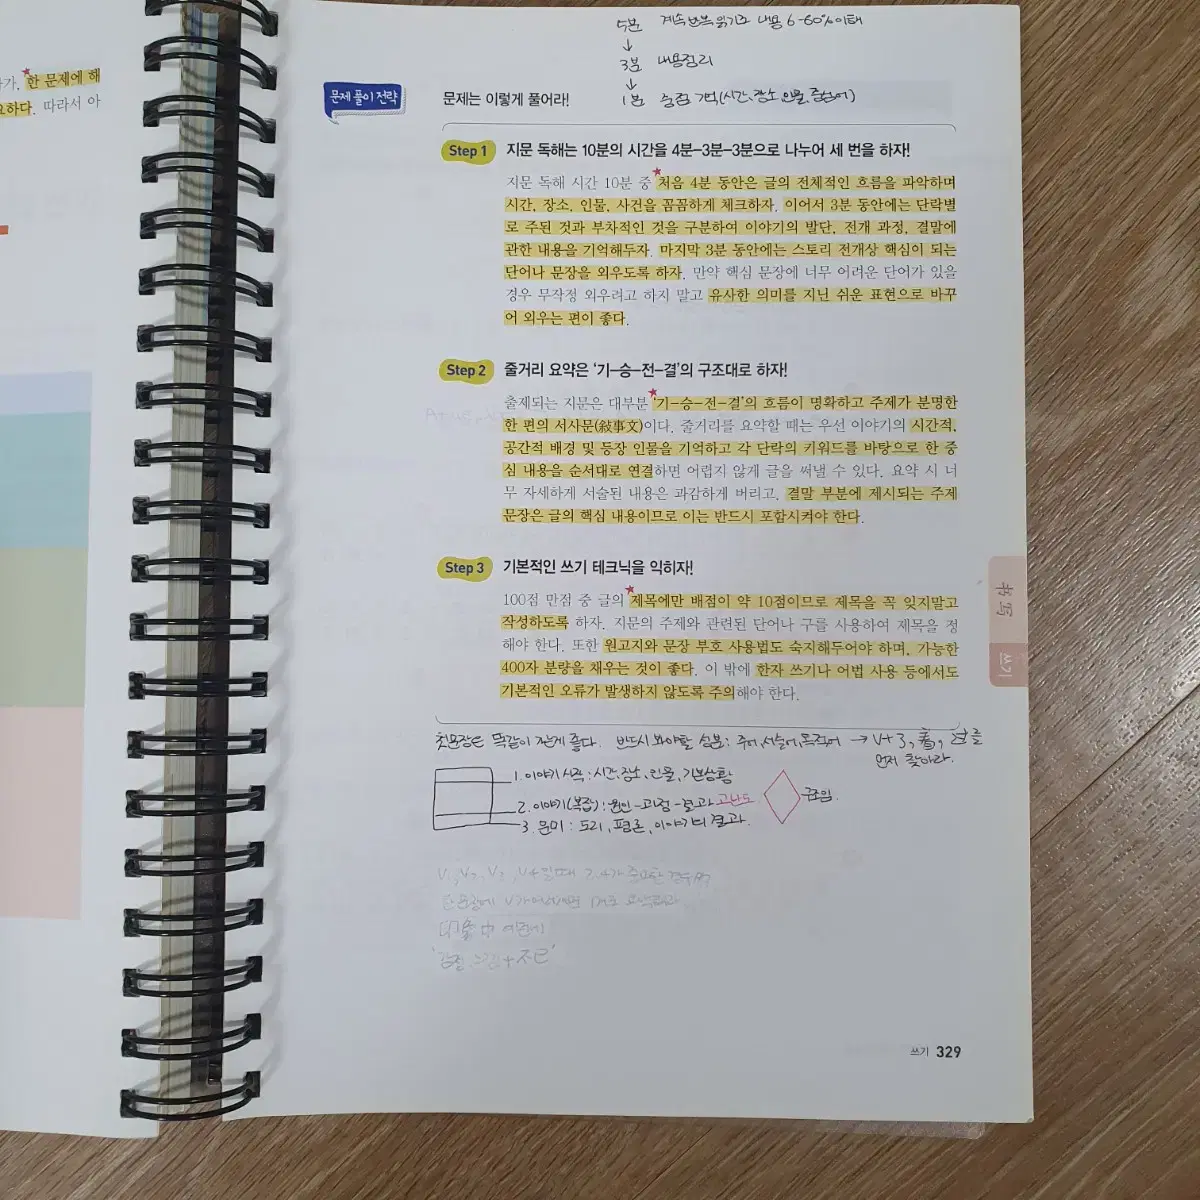 가. 한 문제에 해
요하다. 따라서 아
5분 계속반복읽기로 내용 6-60%이해
↓
3분 내용정리
↓
1분 순점 기억(시간,장소,인물,중심어)
문제 풀이 전략
문제는 이렇게 풀어라!
Step 1 지문 독해는 10분의 시간을 4분-3분-3분으로 나누어 세 번을 하자!
지문 독해 시간 10분 중 처음 4분 동안은 글의 전체적인 흐름을 파악하며
시간, 장소, 인물, 사건을 꼼꼼하게 체크하자. 이어서 3분 동안에는 단락별
로 주된 것과 부차적인 것을 구분하여 이야기의 발단, 전개 과정, 결말에
관한 내용을 기억해두자. 마지막 3분 동안에는 스토리 전개상 핵심이 되는
단어나 문장을 외우도록 하자. 만약 핵심 문장에 너무 어려운 단어가 있을
경우 무작정 외우려고 하지 말고 유사한 의미를 지닌 쉬운 표현으로 바꾸
어 외우는 편이 좋다.
Step 2 줄거리 요약은 '기-승-전-결'의 구조대로 하자!
출제되는 지문은 대부분 '기-승-전-결'의 흐름이 명확하고 주제가 분명한
한 편의 서사문(敍事文)이다. 줄거리를 요약할 때는 우선 이야기의 시간적,
공간적 배경 및 등장 인물을 기억하고 각 단락의 키워드를 바탕으로 한 중
심 내용을 순서대로 연결하면 어렵지 않게 글을 써낼 수 있다. 요약 시 너
무 자세하게 서술된 내용은 과감하게 버리고, 결말 부분에 제시되는 주제
문장은 글의 핵심 내용이므로 이는 반드시 포함시켜야 한다.
Step 3 기본적인 쓰기 테크닉을 익히자!
100점 만점 중 글의 제목에만 배점이 약 10점이므로 제목을 꼭 잊지말고
작성하도록 하자. 지문의 주제와 관련된 단어나 구를 사용하여 제목을 정
해야 한다. 또한 원고지와 문장 부호 사용법도 숙지해두어야 하며, 가능한
400자 분량을 채우는 것이 좋다. 이 밖에 한자 쓰기나 어법 사용 등에서도
기본적인 오류가 발생하지 않도록 주의해야 한다.
书写
쓰기
첫문장은 똑같이 쓰는게 좋다. 반드시 봐야할 성분: 주어,서술어,목적어 → V+了, 着, 过를
먼저 찾아라.
1. 이야기 시작 : 시간,장소,인물,기본상황
2. 이야기(복잡) : 원인-과정-결과 고난도
3. 문미 : 도리, 평론, 이야기의 결과.
쓰기 329